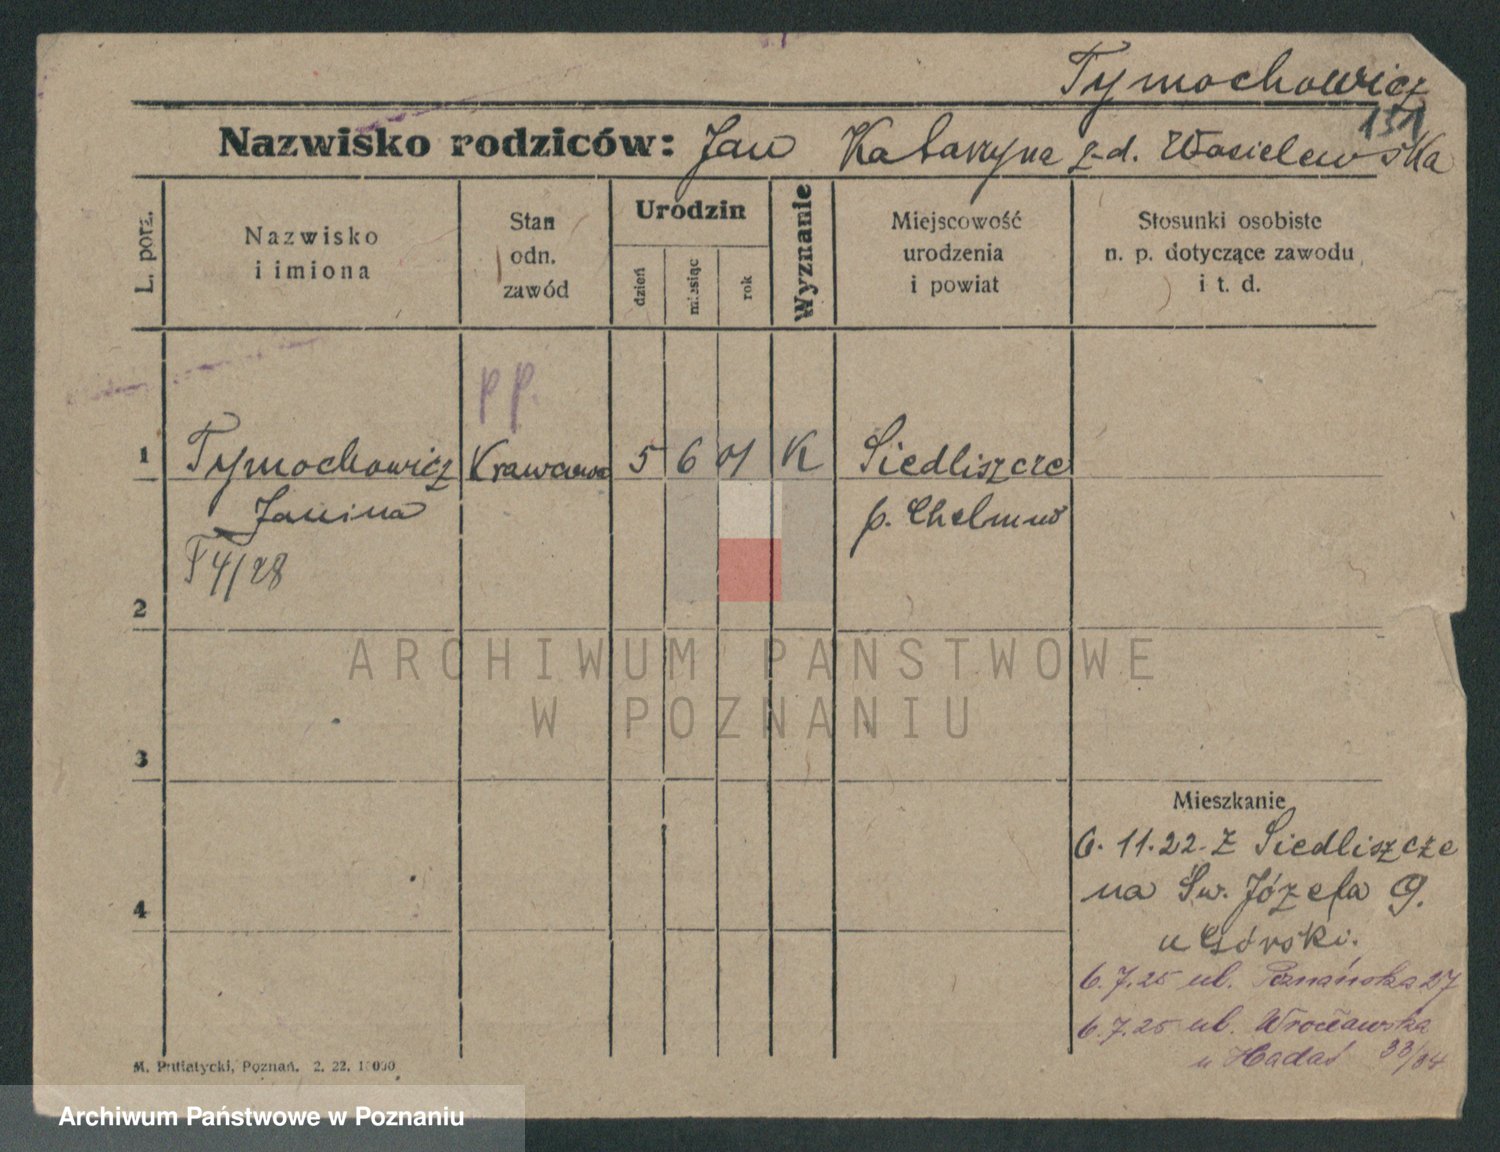 Tymochowicz
151
Nazwisko rodziców: Jan Katarzyna z-d. Wasielewska
L. porz.
Nazwisko
i imiona
Stan
odn.
zawód
Urodzin
dzień
miesiąc
rok
Wyznanie
Miejscowość
urodzenia
i powiat
Stosunki osobiste
n. p. dotyczące zawodu
i t. d.
p p.
1 Tymochowicz Krawcowa 5 6 01 K Siedliszcze
Janina p. Chełmno
4/28
2
ARCHIWUM PAŃSTWOWE
W POZNANIU
3
Mieszkanie
6. 11. 22. z Siedliszcze
na Św. Józefa 9.
4
u Górski.
6. 7. 25 ul. Poznańska 27
6. 7. 25 ul. Wrocławska
u Hadaś 33/34
M. Putiatycki, Poznań. 2. 22. 10000
Archiwum Państwowe w Poznaniu